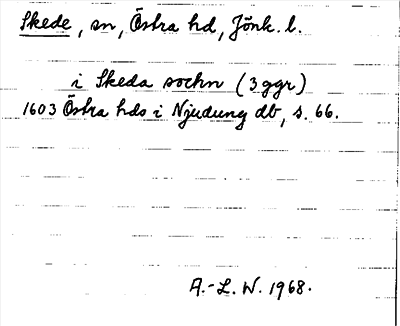 Skede, sn, Östra hd, Jönk. l.
i Skeda sochn (3 ggr)
1603 Östra hds i Njudung db, s. 66.
A.-L. W. 1968.